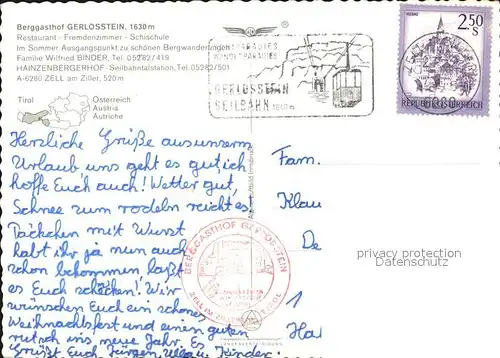 Berggasthof GERLOSSTEIN, 1630 m
Restaurant - Fremdenzimmer - Schischule
Im Sommer Ausgangspunkt zu schönen Bergwanderungen
Familie Wilfried BINDER, Tel. 05282/419
HAINZENBERGERHOF - Seilbahntalstation, Tel. 05282/501
A-6280 ZELL am Ziller, 520 m
Tirol
Österreich
Austria
Autriche
WANDERPARADIES
GERLOSSTEIN
SEILBAHN
2.50 S
REPUBLIK ÖSTERREICH
Herzliche Grüße aus unserm
Urlaub uns geht es gut, ich
hoffe Euch auch! Wetter gut,
Schnee zum rodeln reicht es
Päckchen mit Wurst
habt ihr ja nun auch
schon bekommen laßt
es Euch schmecken! Wir
wünschen Euch ein schönes
Weihnachtsfest und einen guten
rutsch ins neue Jahr. Es
Grüßt Euch Jürgen, Kinder
Fam.
Klau
De
1
Ha
privacy protection
Datenschutz
BERGGASTHOF GERLOSSTEIN
ZELL IM ZILLERTAL TIROL